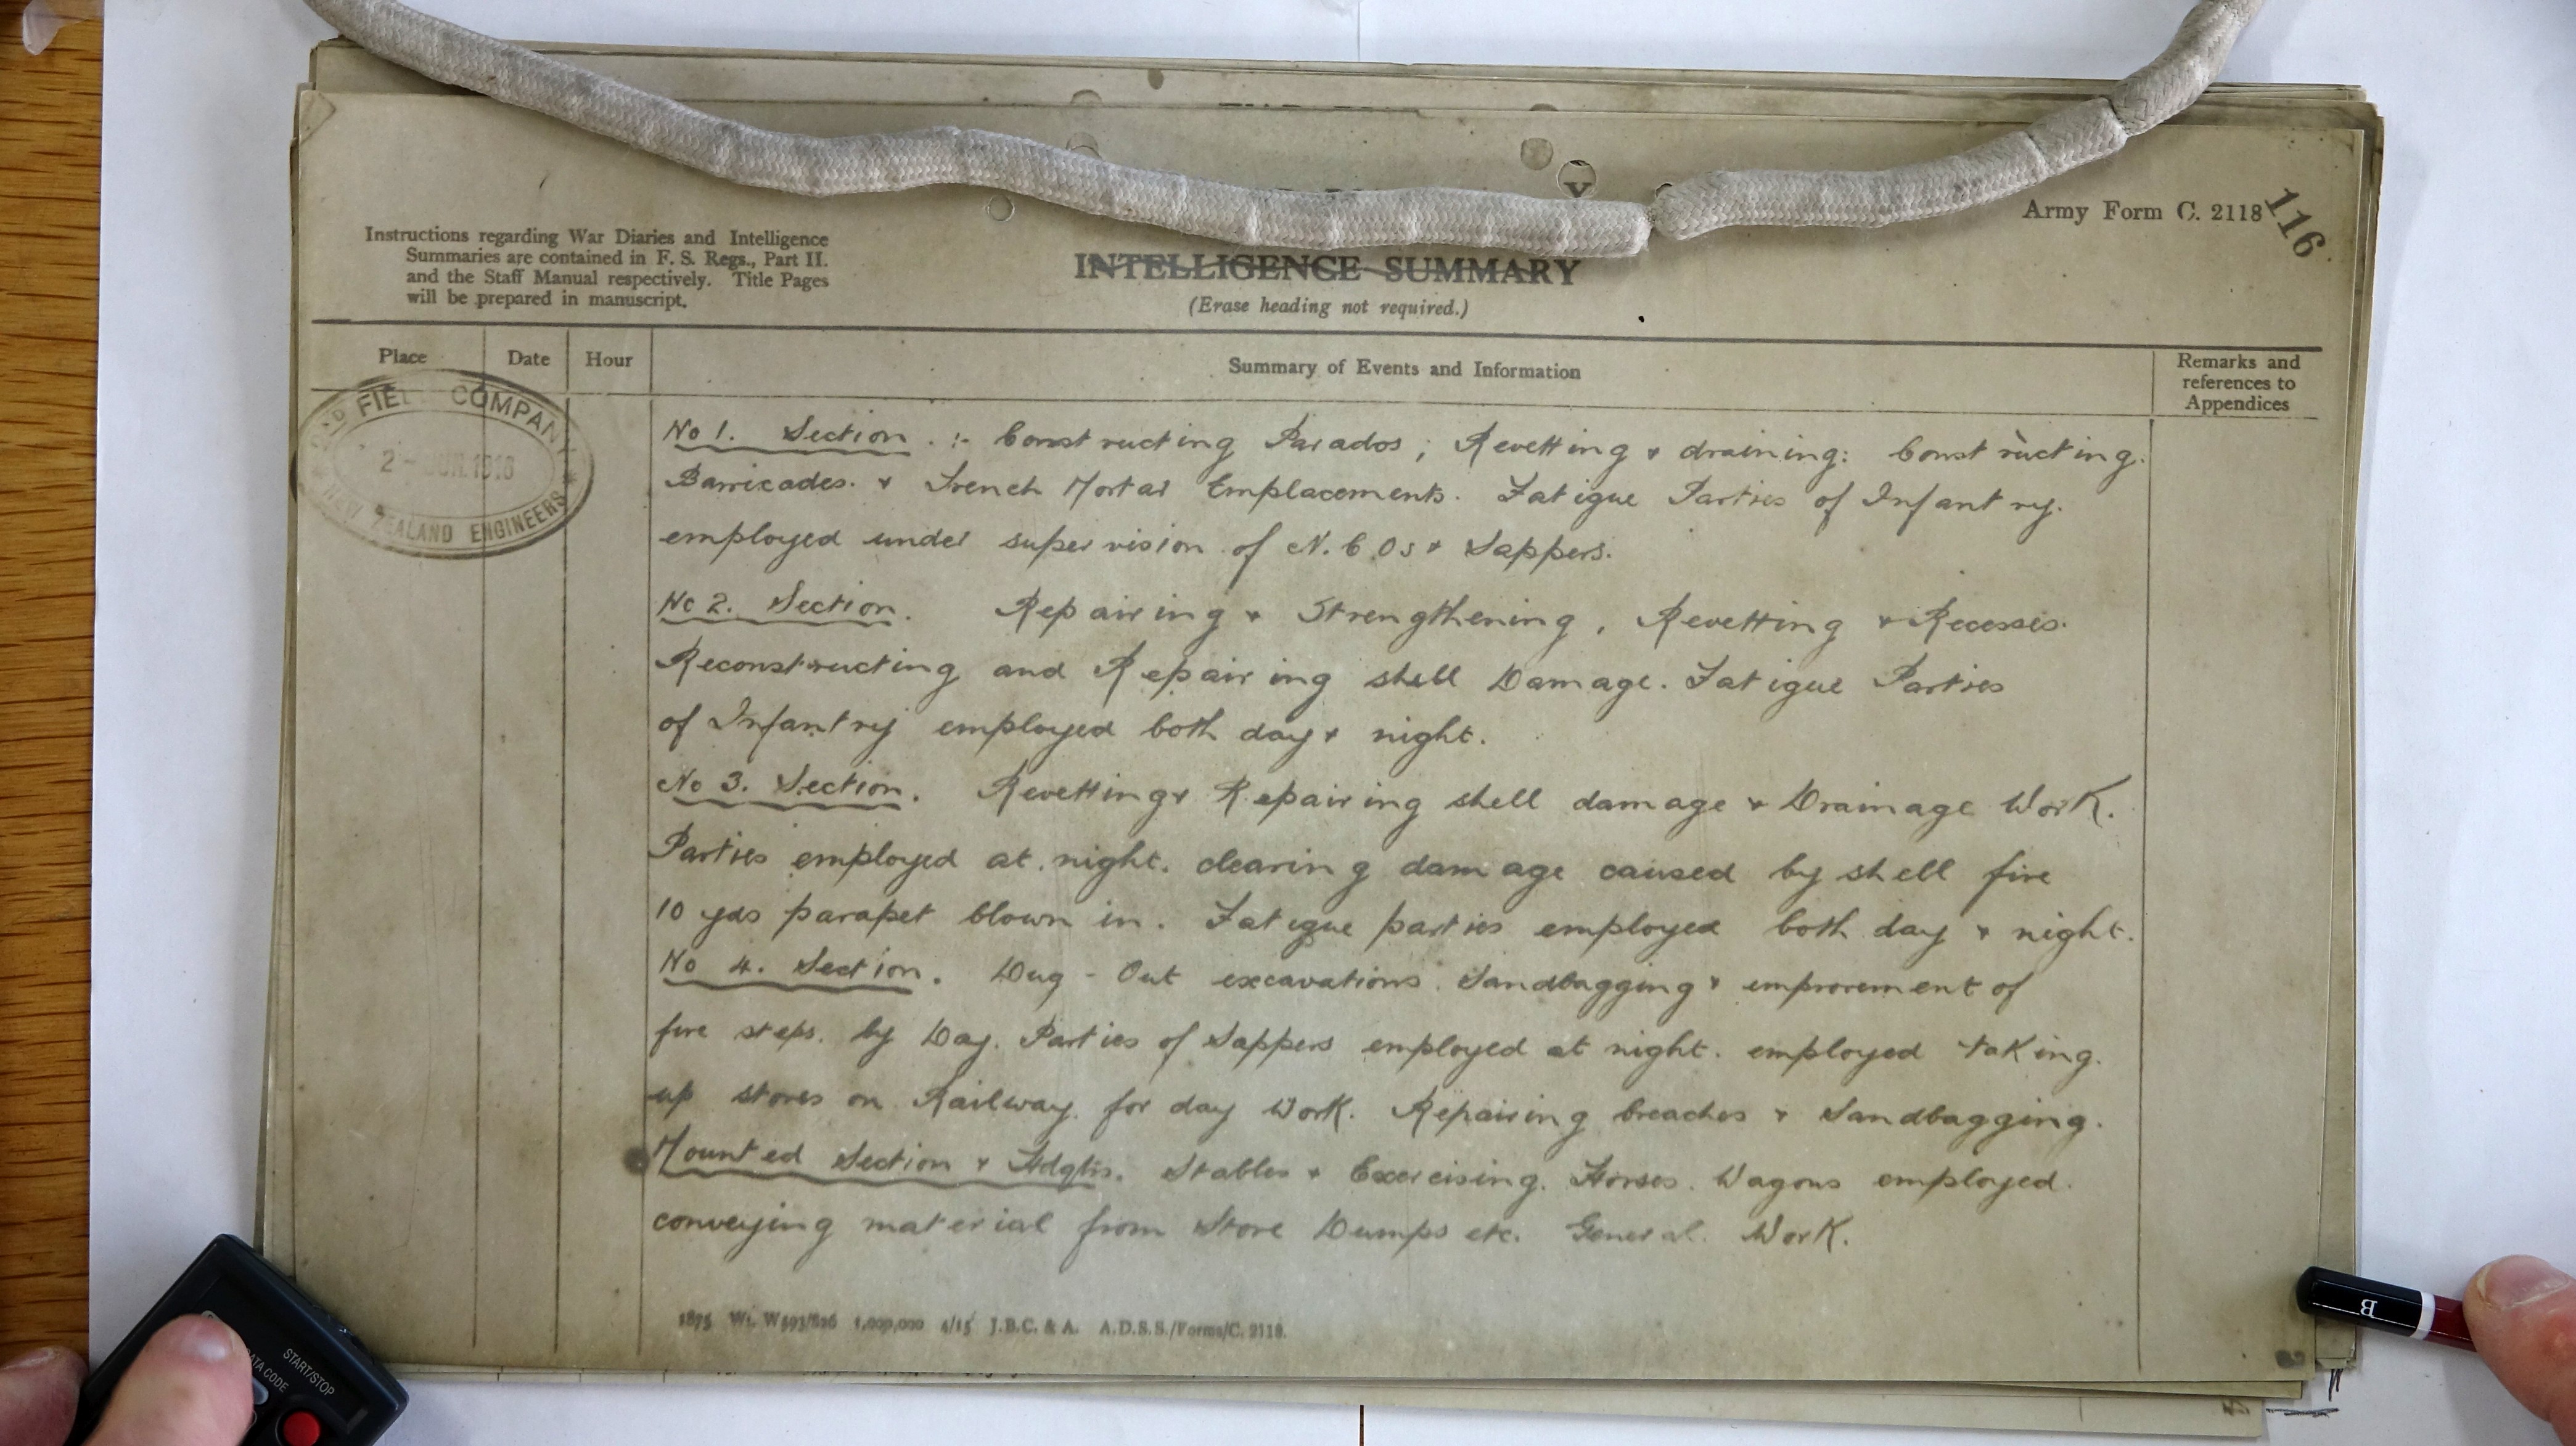 Army Form C. 2118
116
Instructions regarding War Diaries and Intelligence
Summaries are contained in F. S. Regs., Part II.
and the Staff Manual respectively. Title Pages
will be prepared in manuscript.
INTELLIGENCE SUMMARY
(Erase heading not required.)
Place Date Hour Summary of Events and Information Remarks and
references to
Appendices
FIELD COMPANY
2 - JUN. 1916
NEW ZEALAND ENGINEERS
No 1. Section. :- Constructing Parados; Revetting & draining: Constructing.
Barricades. & Trench Mortar Emplacements. Fatigue Parties of Infantry.
employed under supervision of N.C.Os & Sappers.
No 2. Section. Repairing & Strengthening, Revetting & Recesses.
Reconstructing and Repairing shell Damage. Fatigue Parties
of Infantry employed both day & night.
No 3. Section. Revetting & Repairing shell damage & Drainage Work.
Parties employed at night. clearing damage caused by shell fire
10 yds parapet blown in. Fatigue parties employed both day & night.
No 4. Section. Dug - Out excavations. Sandbagging & improvement of
fire steps. by Day. Parties of Sappers employed at night. employed taking.
up stores on Railway. for day work. Repairing breaches & Sandbagging.
Mounted Section & Hdqtrs. Stables & Exercising. Horses. Wagons employed.
conveying material from Store Dumps etc. General. Work.
1875 Wt. W593/826 1,000,000 4/15 J.B.C. & A. A.D.S.S./Forms/C. 2118.
DATA CODE
START/STOP
B